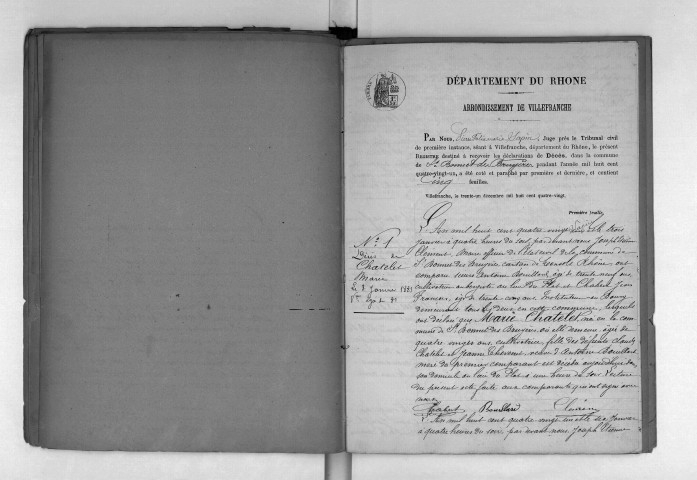 DÉPARTEMENT DU RHONE
ARRONDISSEMENT DE VILLEFRANCHE
PAR NOUS, Juge près le Tribunal civil
de première instance, séant à Villefranche, département du Rhône, le présent
REGISTRE destiné à recevoir les déclarations de DÉCÈS, dans la commune
de St Bonnet des Bruyères pendant l'année mil huit cent
quatre-vingt-un, a été coté et paraphé par première et dernière, et contient
Cinq feuilles.
Villefranche, le trente-un décembre mil huit cent quatre-vingt.
Première feuille
N° 1
Décès de
Chatelet
Marie
Le 3 Janvier 1881
L'An mil huit cent quatre vingt un et le trois
janvier à quatre heures du soir par devant nous Joseph Etienne
Maire officier de l'Etat civil de la commune de
St Bonnet des Bruyères canton de Monsols Rhône, ont
comparu Antoine Bouillard, âgé de trente neuf ans
cultivateur au lieu du Plat et Chabert Jean
François, âgé de trente cinq ans Instituteur au Bourg
demeurant tous les deux en cette commune, lesquels
ont déclaré que Marie Chatelet née en la com
mune de St Bonnet des Bruyères où elle demeure, âgée de
quatre vingt ans, cultivatrice, fille des défunts Claude
Chatelet et Jeanne veuve d'Antoine Bouillard
mère du premier comparant est décédée aujourd'hui dans
son domicile au lieu du Plat à une heure du soir. Lecture
du présent acte faite aux comparants qui ont signé avec
nous.
Chabert Bouillard
L'An mil huit cent quatre vingt un et le Janvier
à quatre heures du soir par devant nous Joseph Etienne